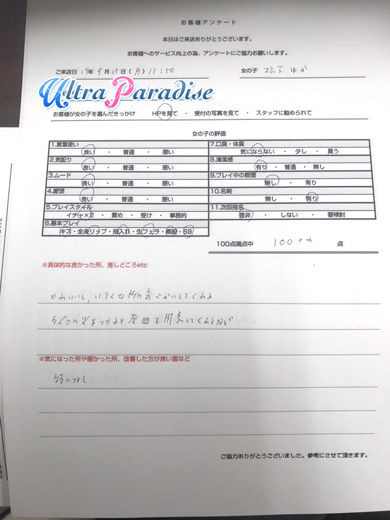 お客様アンケート
本日はご来店ありがとうございます。
お客様へのサービス向上の為、アンケートにご協力お願いします。
ご来店日 女の子
Ultra Paradise
お客様が女の子を選んだきっかけ HPを見て ・ 受付の写真を見て ・ スタッフに勧められて
女の子の評価
1.言葉使い
良い ・ 普通 ・ 悪い
2.気配り
良い ・ 普通 ・ 悪い
3.ムード
良い ・ 普通 ・ 悪い
4.愛想
良い ・ 普通 ・ 悪い
5.プレイスタイル
イチャ×2 ・ 責め ・ 受け ・ 事務的
6.基本プレイ
キス・全身リップ・指入れ・生フェラ・素股・69
7.口臭・体臭
気にならない ・ 少し ・ 臭う
8.清潔感
有り ・ 普通 ・ 無し
9.プレイ中の喫煙
無し ・ 有り
10.名刺
無し ・ 有り
11.次回指名
是非 ・ しない ・ 要検討
100点満点中 100 点
※具体的な良かった所、推しどころetc
※気になった所や悪かった所、改善した方が良い面など
特になし
ご協力ありがとうございました。参考にさせて頂きます。